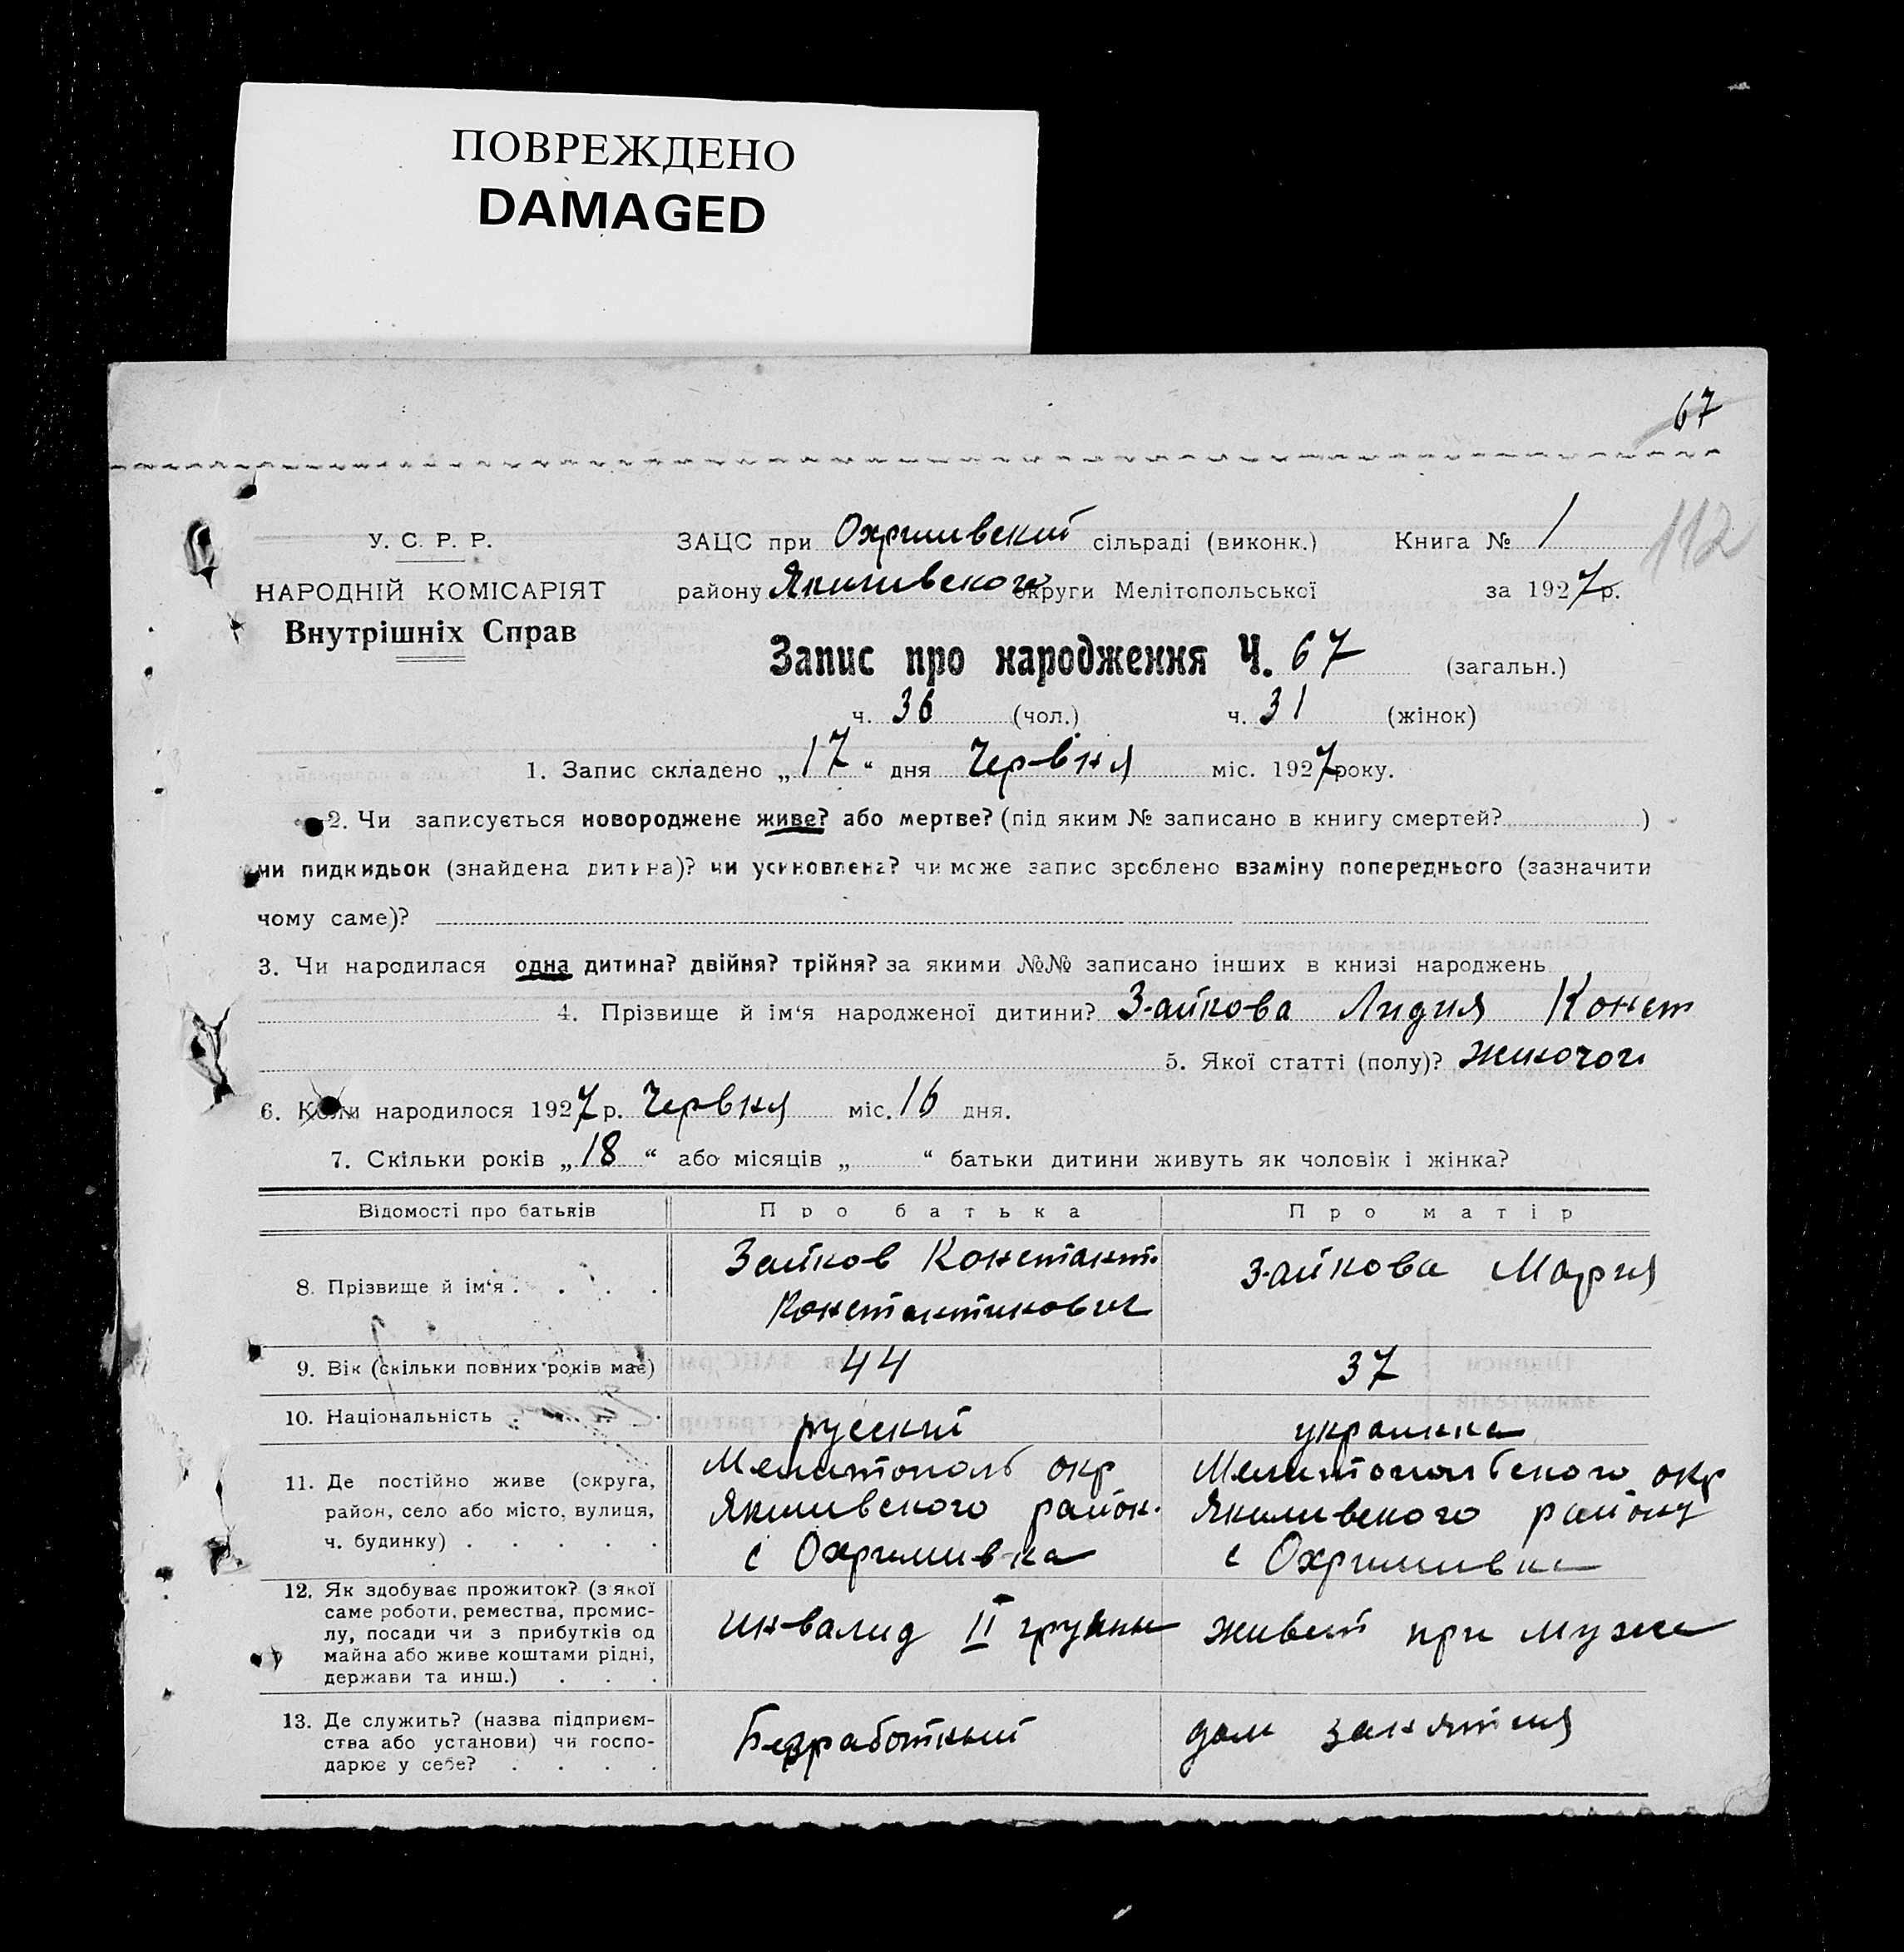 ПОВРЕЖДЕНО
DAMAGED
67
112
У. С. Р. Р.
НАРОДНІЙ КОМІСАРІЯТ
Внутрішніх Справ
ЗАЦС при Охримивский сільраді (виконк.) Книга № 1
району Якимивского округи Мелітопольської за 1927 р.
Запис про народження Ч. 67 (загальн.)
ч. 36 (чол.) ч. 31 (жінок)
1. Запис складено „17“ дня Червня міс. 1927 року.
2. Чи записується новороджене живе? або мертве? (під яким № записано в книгу смертей? )
чи пидкидьок (знайдена дитина)? чи усиновлена? чи може запис зроблено взаміну попереднього (зазначити
чому саме)?
3. Чи народилася одна дитина? двійня? трійня? за якими №№ записано інших в книзі народжень
4. Прізвище й ім‘я народженої дитини? Зайкова Лидия Конст
5. Якої статті (полу)? Жиночои
6. Коли народилося 1927 р. Червня міс. 16 дня.
7. Скільки років „18“ або місяців „ “ батьки дитини живуть як чоловік і жінка?
Відомості про батьків Про батька Про матір
8. Прізвище й ім‘я . . . . Зайков Констант. Зайкова Мария
Константинович
9. Вік (скільки повних років має) 44 37
10. Національність . . . . русский украинка
11. Де постійно живе (округа, Мелитополь окр Мелитопольского окр
район, село або місто, вулиця, Якимивского район. Якимивского району
ч. будинку) . . . . . с Охримивка с Охримивка
12. Як здобуває прожиток? (з якої
саме роботи, ремества, промис-
лу, посади чи з прибутків од инвалид II групы живет при муже
майна або живе коштами рідні,
держави та инш.) . . .
13. Де служить? (назва підприєм-
ства або установи) чи госпо- Безработный дом занятия
дарює у себе? . . . .